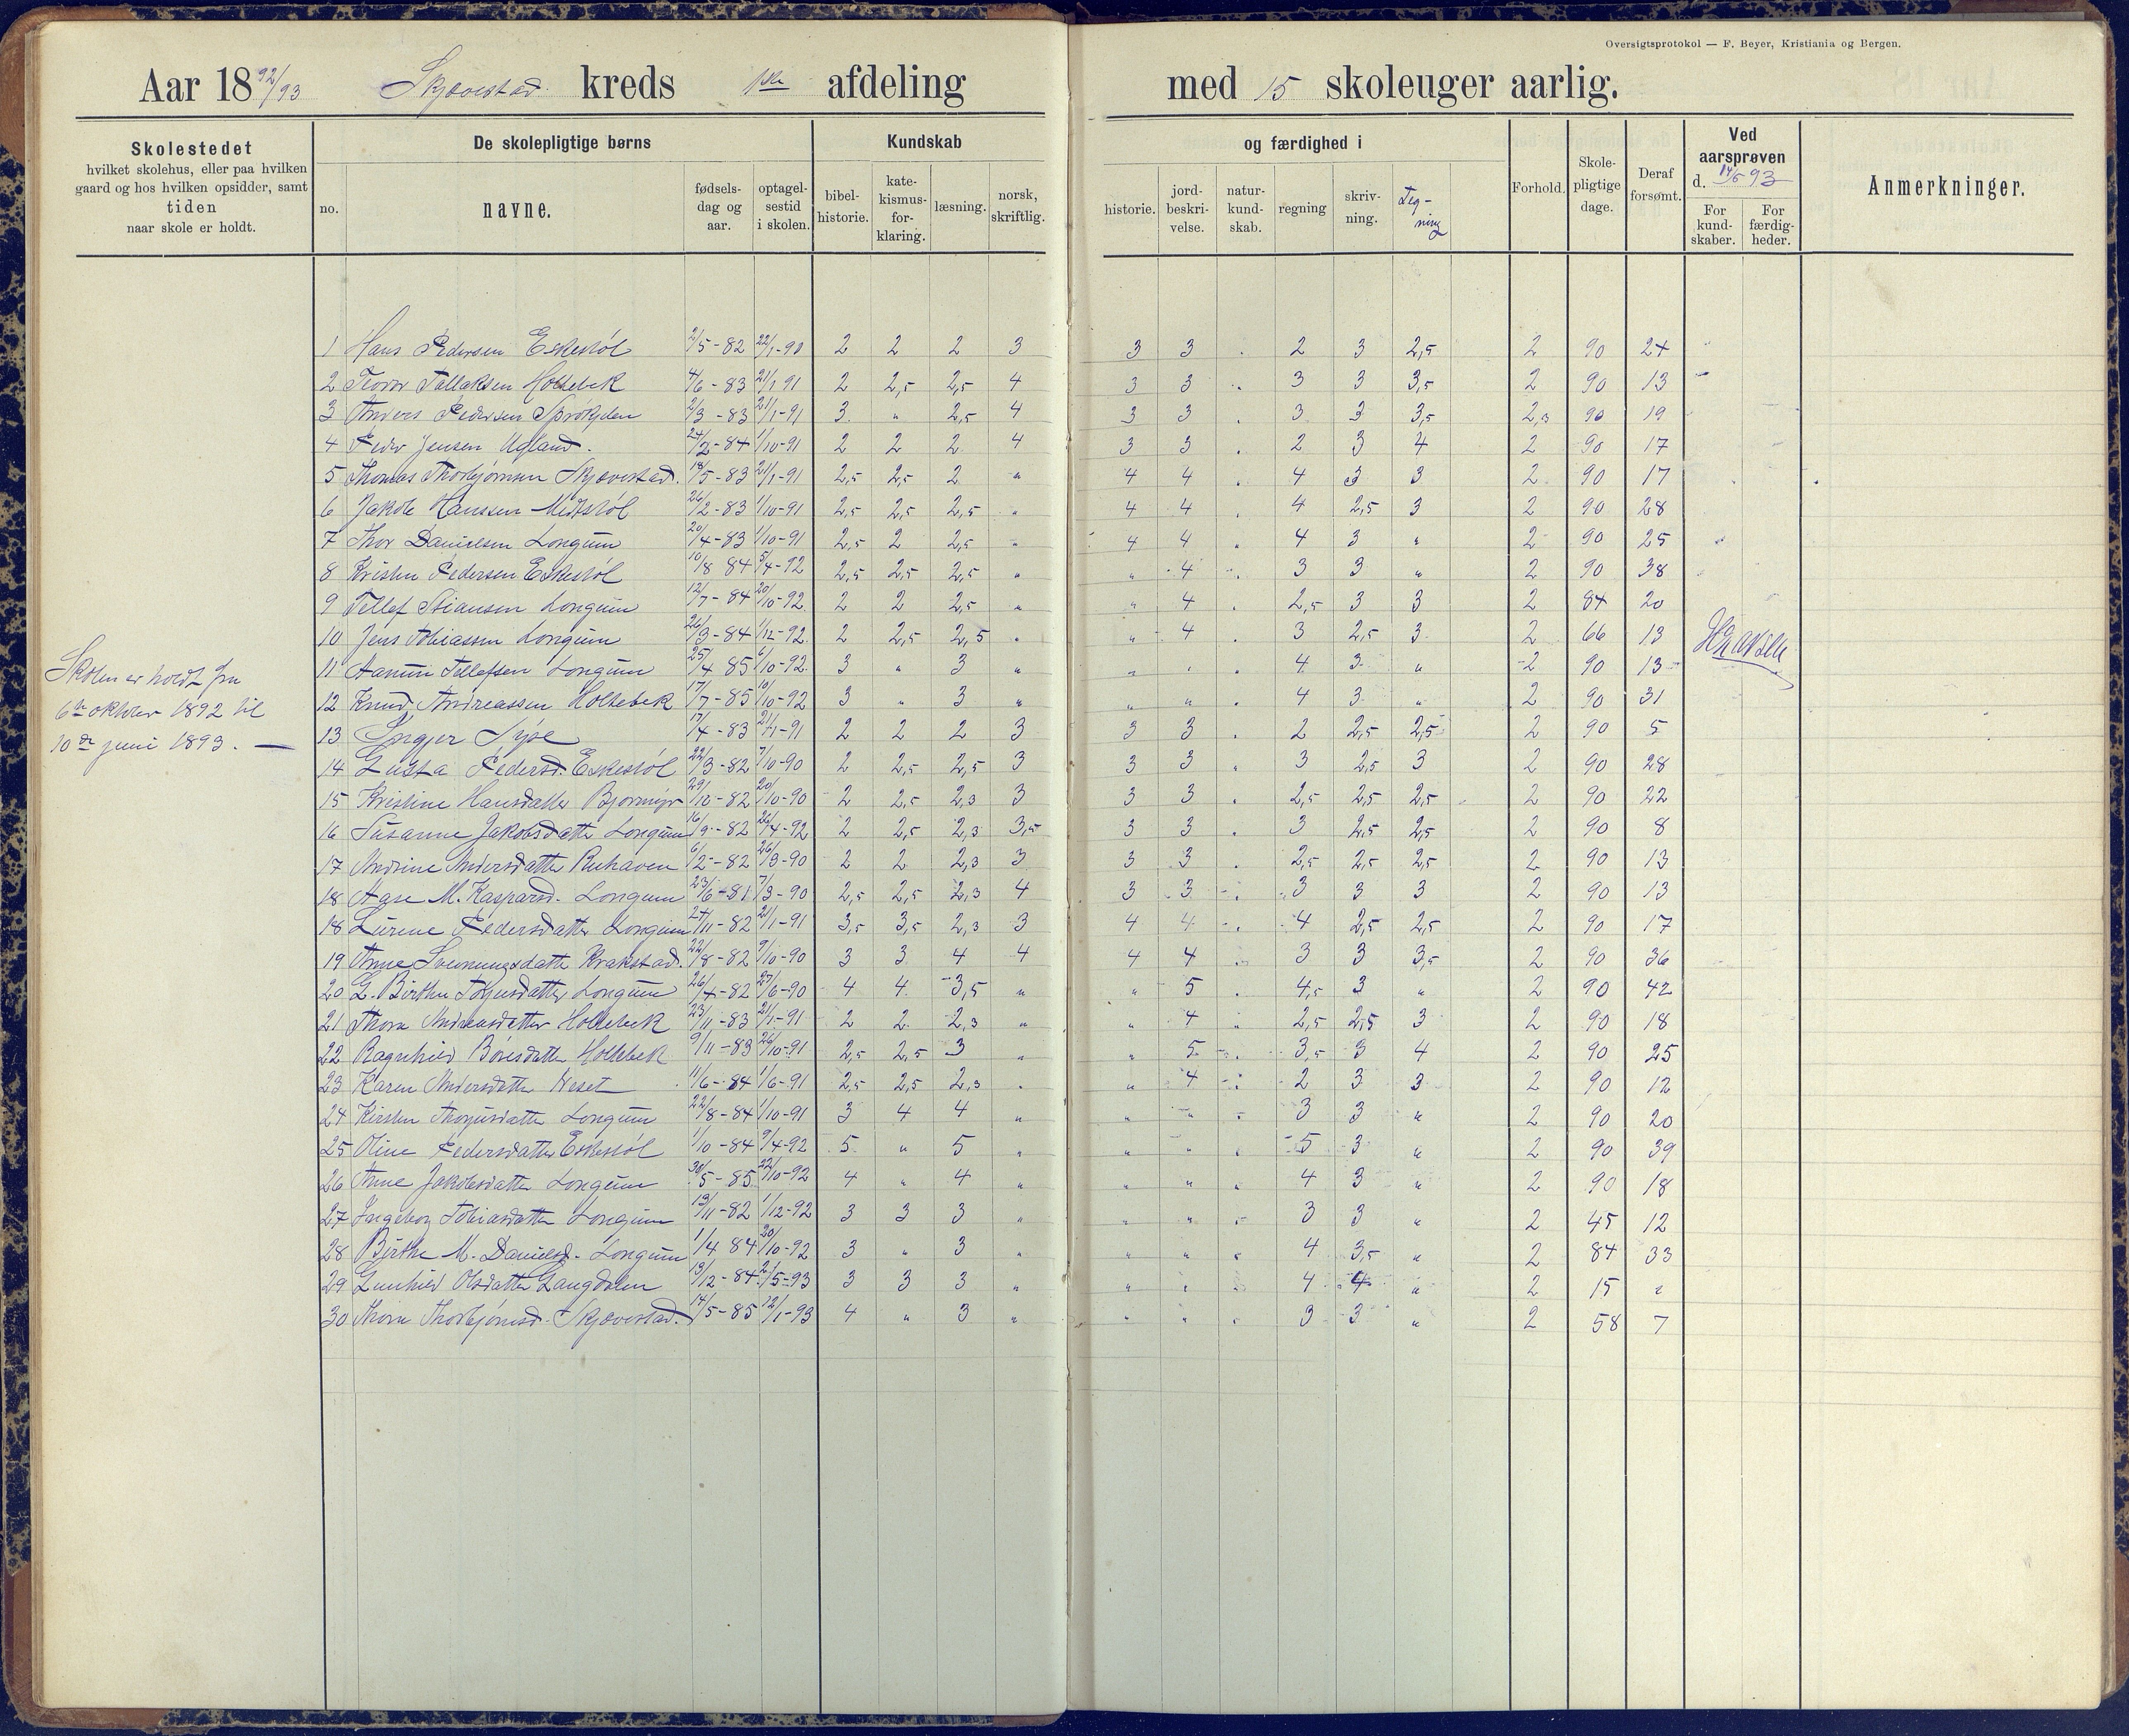 Oversigtsprotokol — F. Beyer, Kristiania og Bergen.
Aar 1892/93 Skjævestad kreds 1ste afdeling med 15 skoleuger aarlig.
Skolestedet
hvilket skolehus, eller paa hvilken
gaard og hos hvilken opsidder, samt
tiden
naar skole er holdt.
De skolepligtige børns
no.
navne.
fødsels-
dag og
aar.
optagel-
sestid
i skolen.
Kundskab
bibel-
historie.
kate-
kismus-
for-
klaring.
læsning.
norsk,
skriftlig.
og færdighed i
historie.
jord-
beskri-
velse.
natur-
kund-
skab.
regning
skriv-
ning.
Teg-
ning
Forhold.
Skole-
pligtige
dage.
Deraf
forsømt.
Ved
aarsprøven
d. 14/6 93
For
kund-
skaber.
For
færdig-
heder.
Anmerkninger.
1 Hans Pedersen Eskestøl 2/5-82 22/1-90 2 2 2 3 3 3 . 2 3 2,5 2 90 24
2 Teodor Tallaksen Holtebek 4/6-83 21/1 91 2 2,5 2,5 4 3 3 . 3 3 3,5 2 90 13
3 Anders Pedersen 2/3-83 21/1-91 3 " 2,5 4 3 3 . 3 3 3,5 2,3 90 19
4 Peder Jensen Ugland. 24/2-84 1/10-91 2 2 2 4 3 3 . 2 3 4 2 90 17
5 Thomas Thorbjørnsen Skjævestad. 18/5-83 21/1-91 2,5 2,5 2 " 4 4 . 4 3 3 2 90 17
6 Jakob Hanssen Midtstøl 26/2-83 1/10-91 2,5 2,5 2,5 " 4 4 . 4 2,5 3 2 90 28
7 Thor Danielsen Longum 20/4-83 1/10-91 2,5 2 2,5 " 4 4 " 4 3 " 2 90 25
8 Kristen Pedersen Eskestøl 10/8 84 5/4-92 2,5 2,5 2,5 " " 4 . 3 3 " 2 90 38
9 Tellef Stiansen Longum 12/7-84 20/10-92. 2 2 2,5 " " 4 . 2,5 3 3 2 84 20
10 Jens Tobiassen Longum 26/3-84 1/12-92. 2 2,5 2,5 " " 4 . 3 2,5 3 2 66 13
11 Aanun Tellefsen Longum 25/4 85 6/10-92. 3 " 3 " " " . 4 3 " 2 90 13
12 Knud Andreassen Holtebek 17/7-85 10/10-92 3 " 3 " " " . 4 3 " 2 90 31
Skolen er holdt fra
6te oktober 1892 til
10de juni 1893. —
13 Ingjer 17/4-83 21/1-91 2 2 2 3 3 3 . 2 2,5 2,5 2 90 5
14 Gusta Pedersd. Eskestøl 22/3-82 7/10-90 2 2,5 2,5 3 3 3 . 3 2,5 3 2 90 28
15 Kristine Hansdatter Bjormyr 29/10-82 20/10-90 2 2,5 2,3 3 3 3 . 2,5 2,5 2,5 2 90 22
16 Susanne Jakobsdatter Longum 16/9-82 26/4-92 2 2,5 2,3 3,5 3 3 . 3 2,5 2,5 2 90 8
17 Andrine Andersdatter 6/2-82 26/3-90 2 2 2,3 3 3 3 . 2,5 2,5 2,5 2 90 13
18 Aase M. Kaspersd. Longum 23/6-81 7/3-90 2,5 2,5 2,3 4 3 3 . 3 3 3 2 90 13
18 Lurene Pedersdatter Longum 27/11-82 21/1-91 3,5 3,5 2,3 3 4 4 . 4 2,5 2,5 2 90 17
19 Anne Sveinungsdatter Krakstad. 22/8-82 9/10-90 3 3 4 4 4 4 . 3 3 3,5 2 90 36
20 G. Birthe Torjusdatter Longum 26/4-82 27/6-90 4 4 3,5 " " 5 . 4,5 3 " 2 90 42
21 Thora Andreasdatter Holtebek 23/11-83 21/1-91 2 2 2,3 " " 4 " 2,5 2,5 3 2 90 18
22 Ragnhild Børesdatter Holtebek 9/11-83 26/10-91 2,5 2,5 3 " " 5 . 3,5 3 4 2 90 25
23 Karen Andersdatter Neset 11/6-84 1/6-91 2,5 2,5 2,3 . " 4 . 2 3 3 2 90 12
24 Kirsten Thorjusdatter Longum 22/8-84 1/10-91 3 4 4 " " " " 3 3 " 2 90 20
25 Oline Pedersdatter Eskestøl 1/10-84 9/4-92 5 " 5 " " " " 5 3 " 2 90 39
26 Anne Jakobsdatter Longum 30/5-85 22/10-92 4 " 4 " " " " 4 3 " 2 90 18
27 Ingeborg Tobiasdatter Longum 13/11-82 1/12-92 3 3 3 " " " " 3 3 " 2 45 12
28 Birthe M. Danielsd. Longum 1/4 84 20/10-92 3 " 3 " " " " 4 3,5 " 2 84 33
29 Gunhild Olsdatter Langdalen 13/12-84 2/5-93 3 3 3 " " " " 4 4 " 2 15 "
30 Thora Thorbjørnsd. Skjævestad. 14/5-85 12/1-93 4 " 3 " " " " 3 3 " 2 58 7